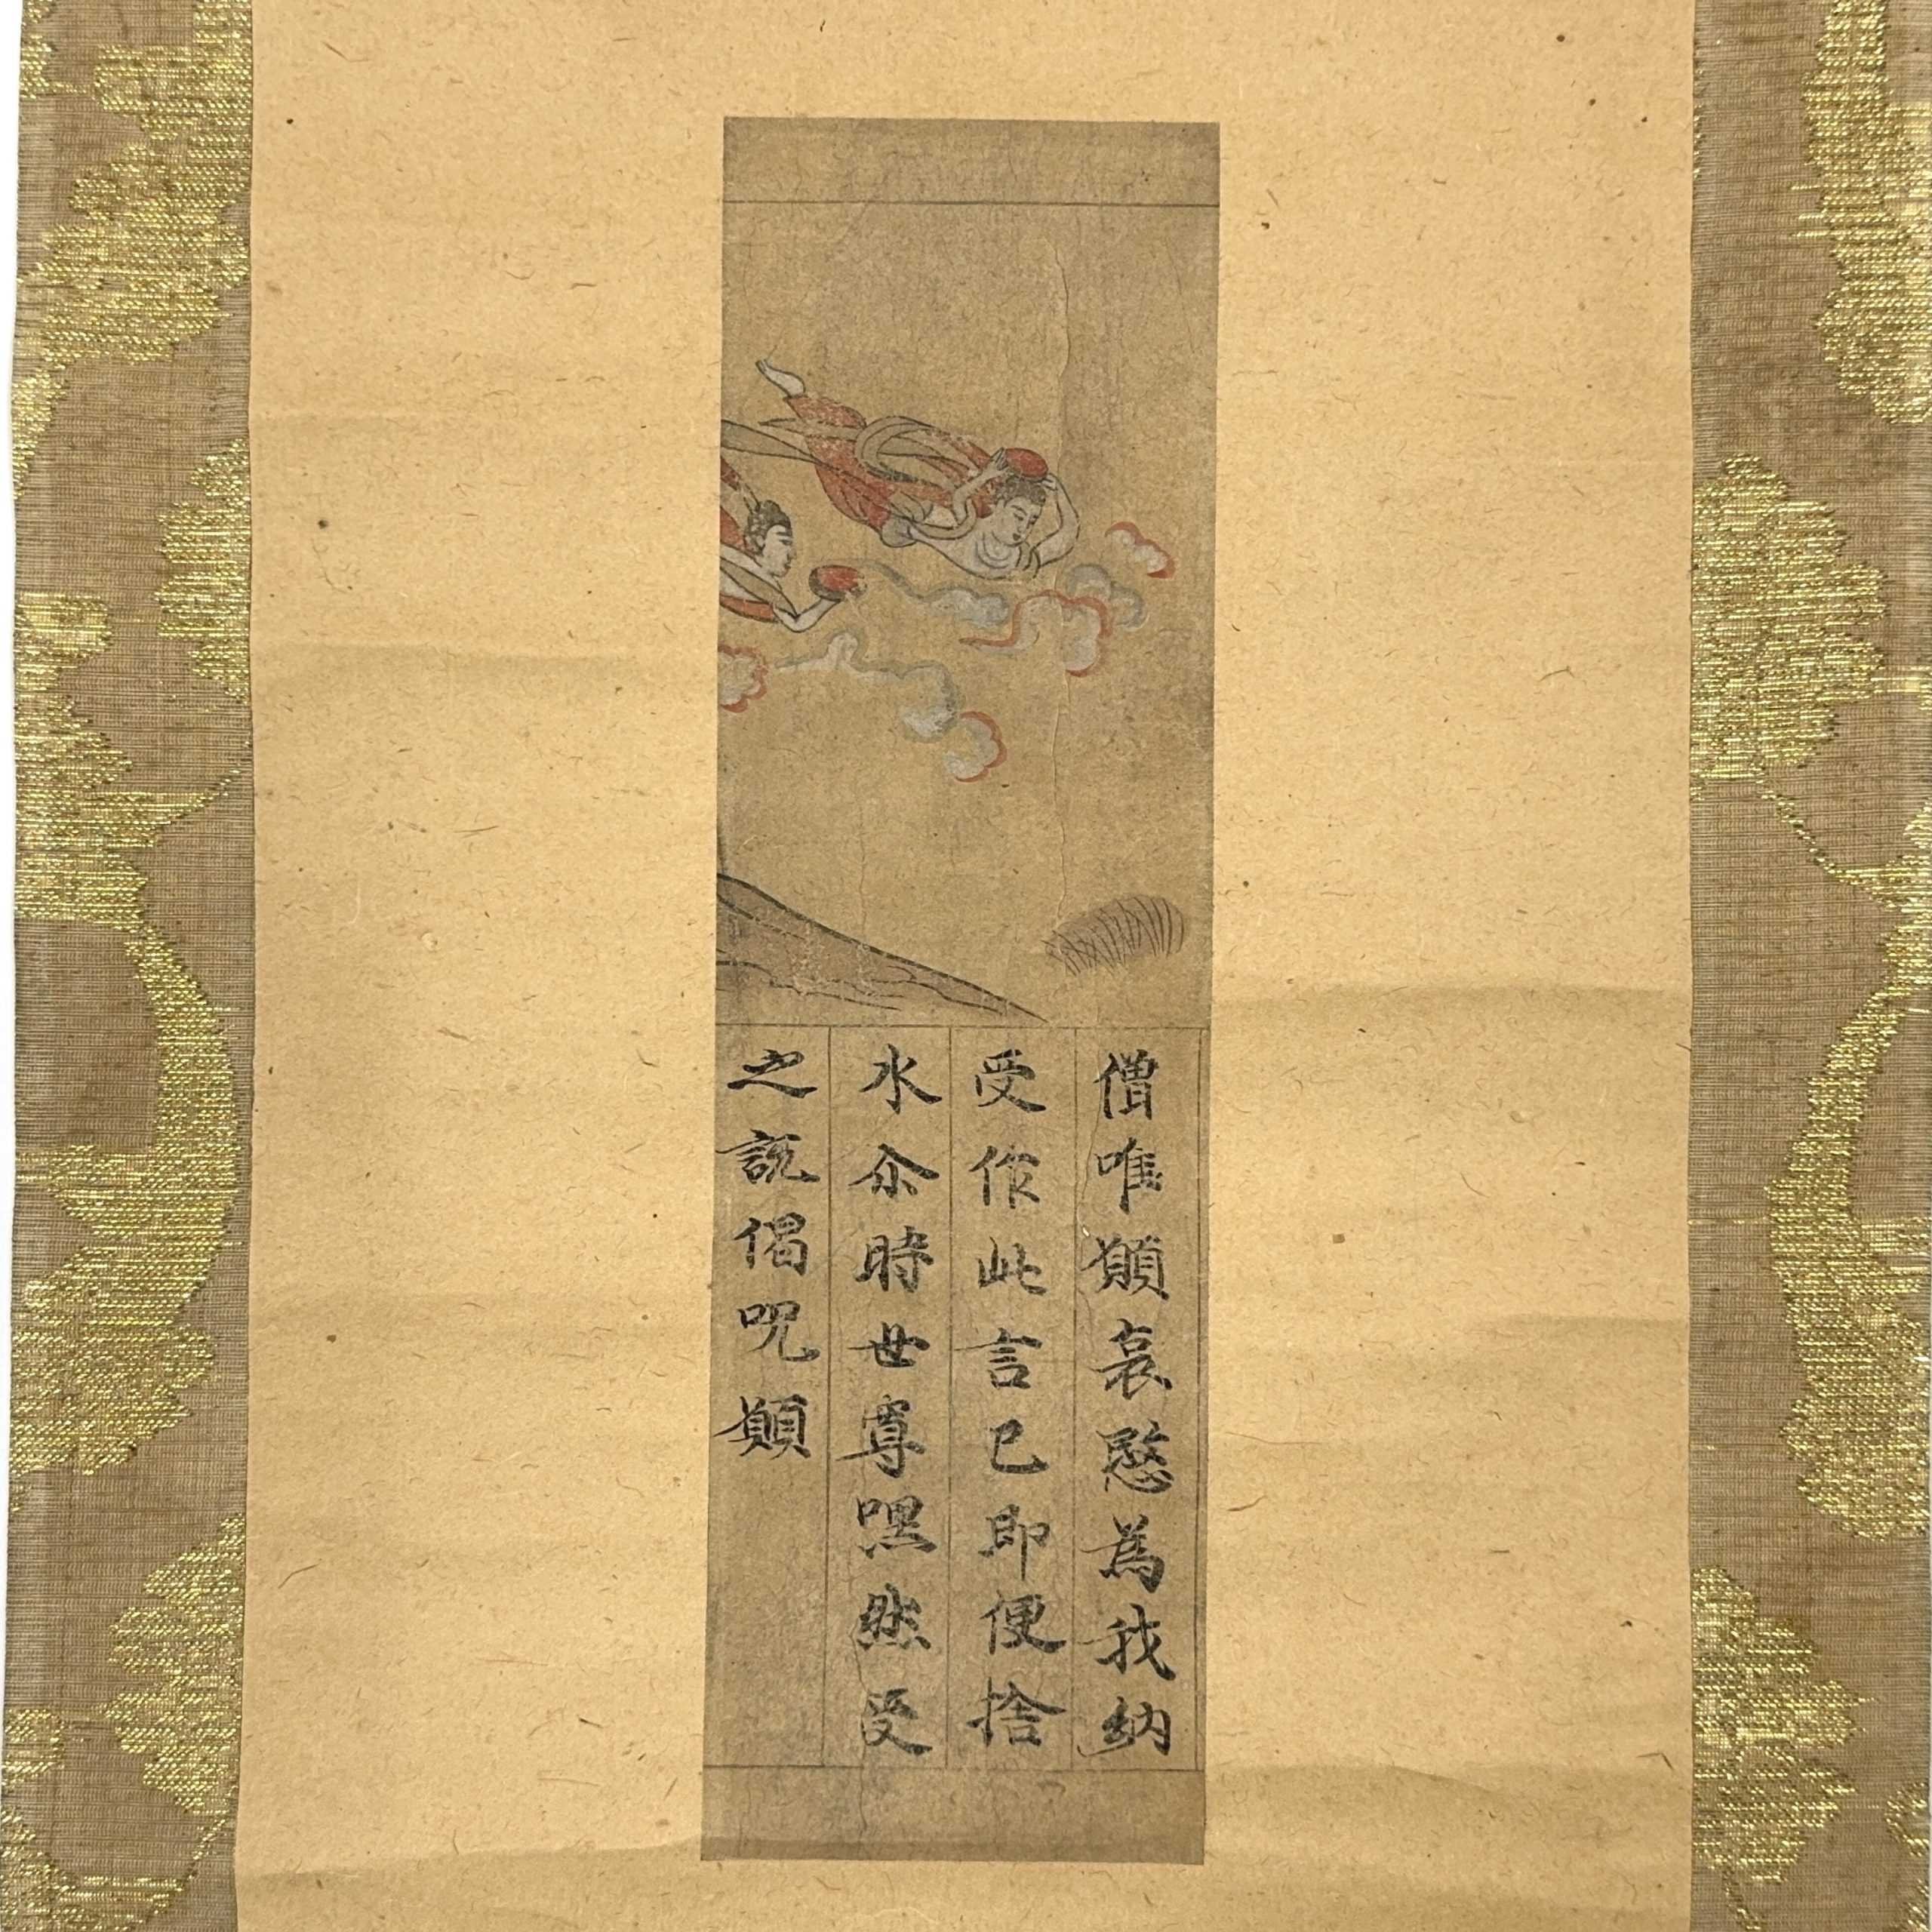 僧唯願哀愍為我納
受作此言已即便捨
水尒時世尊嘿然受
之説偈呪願